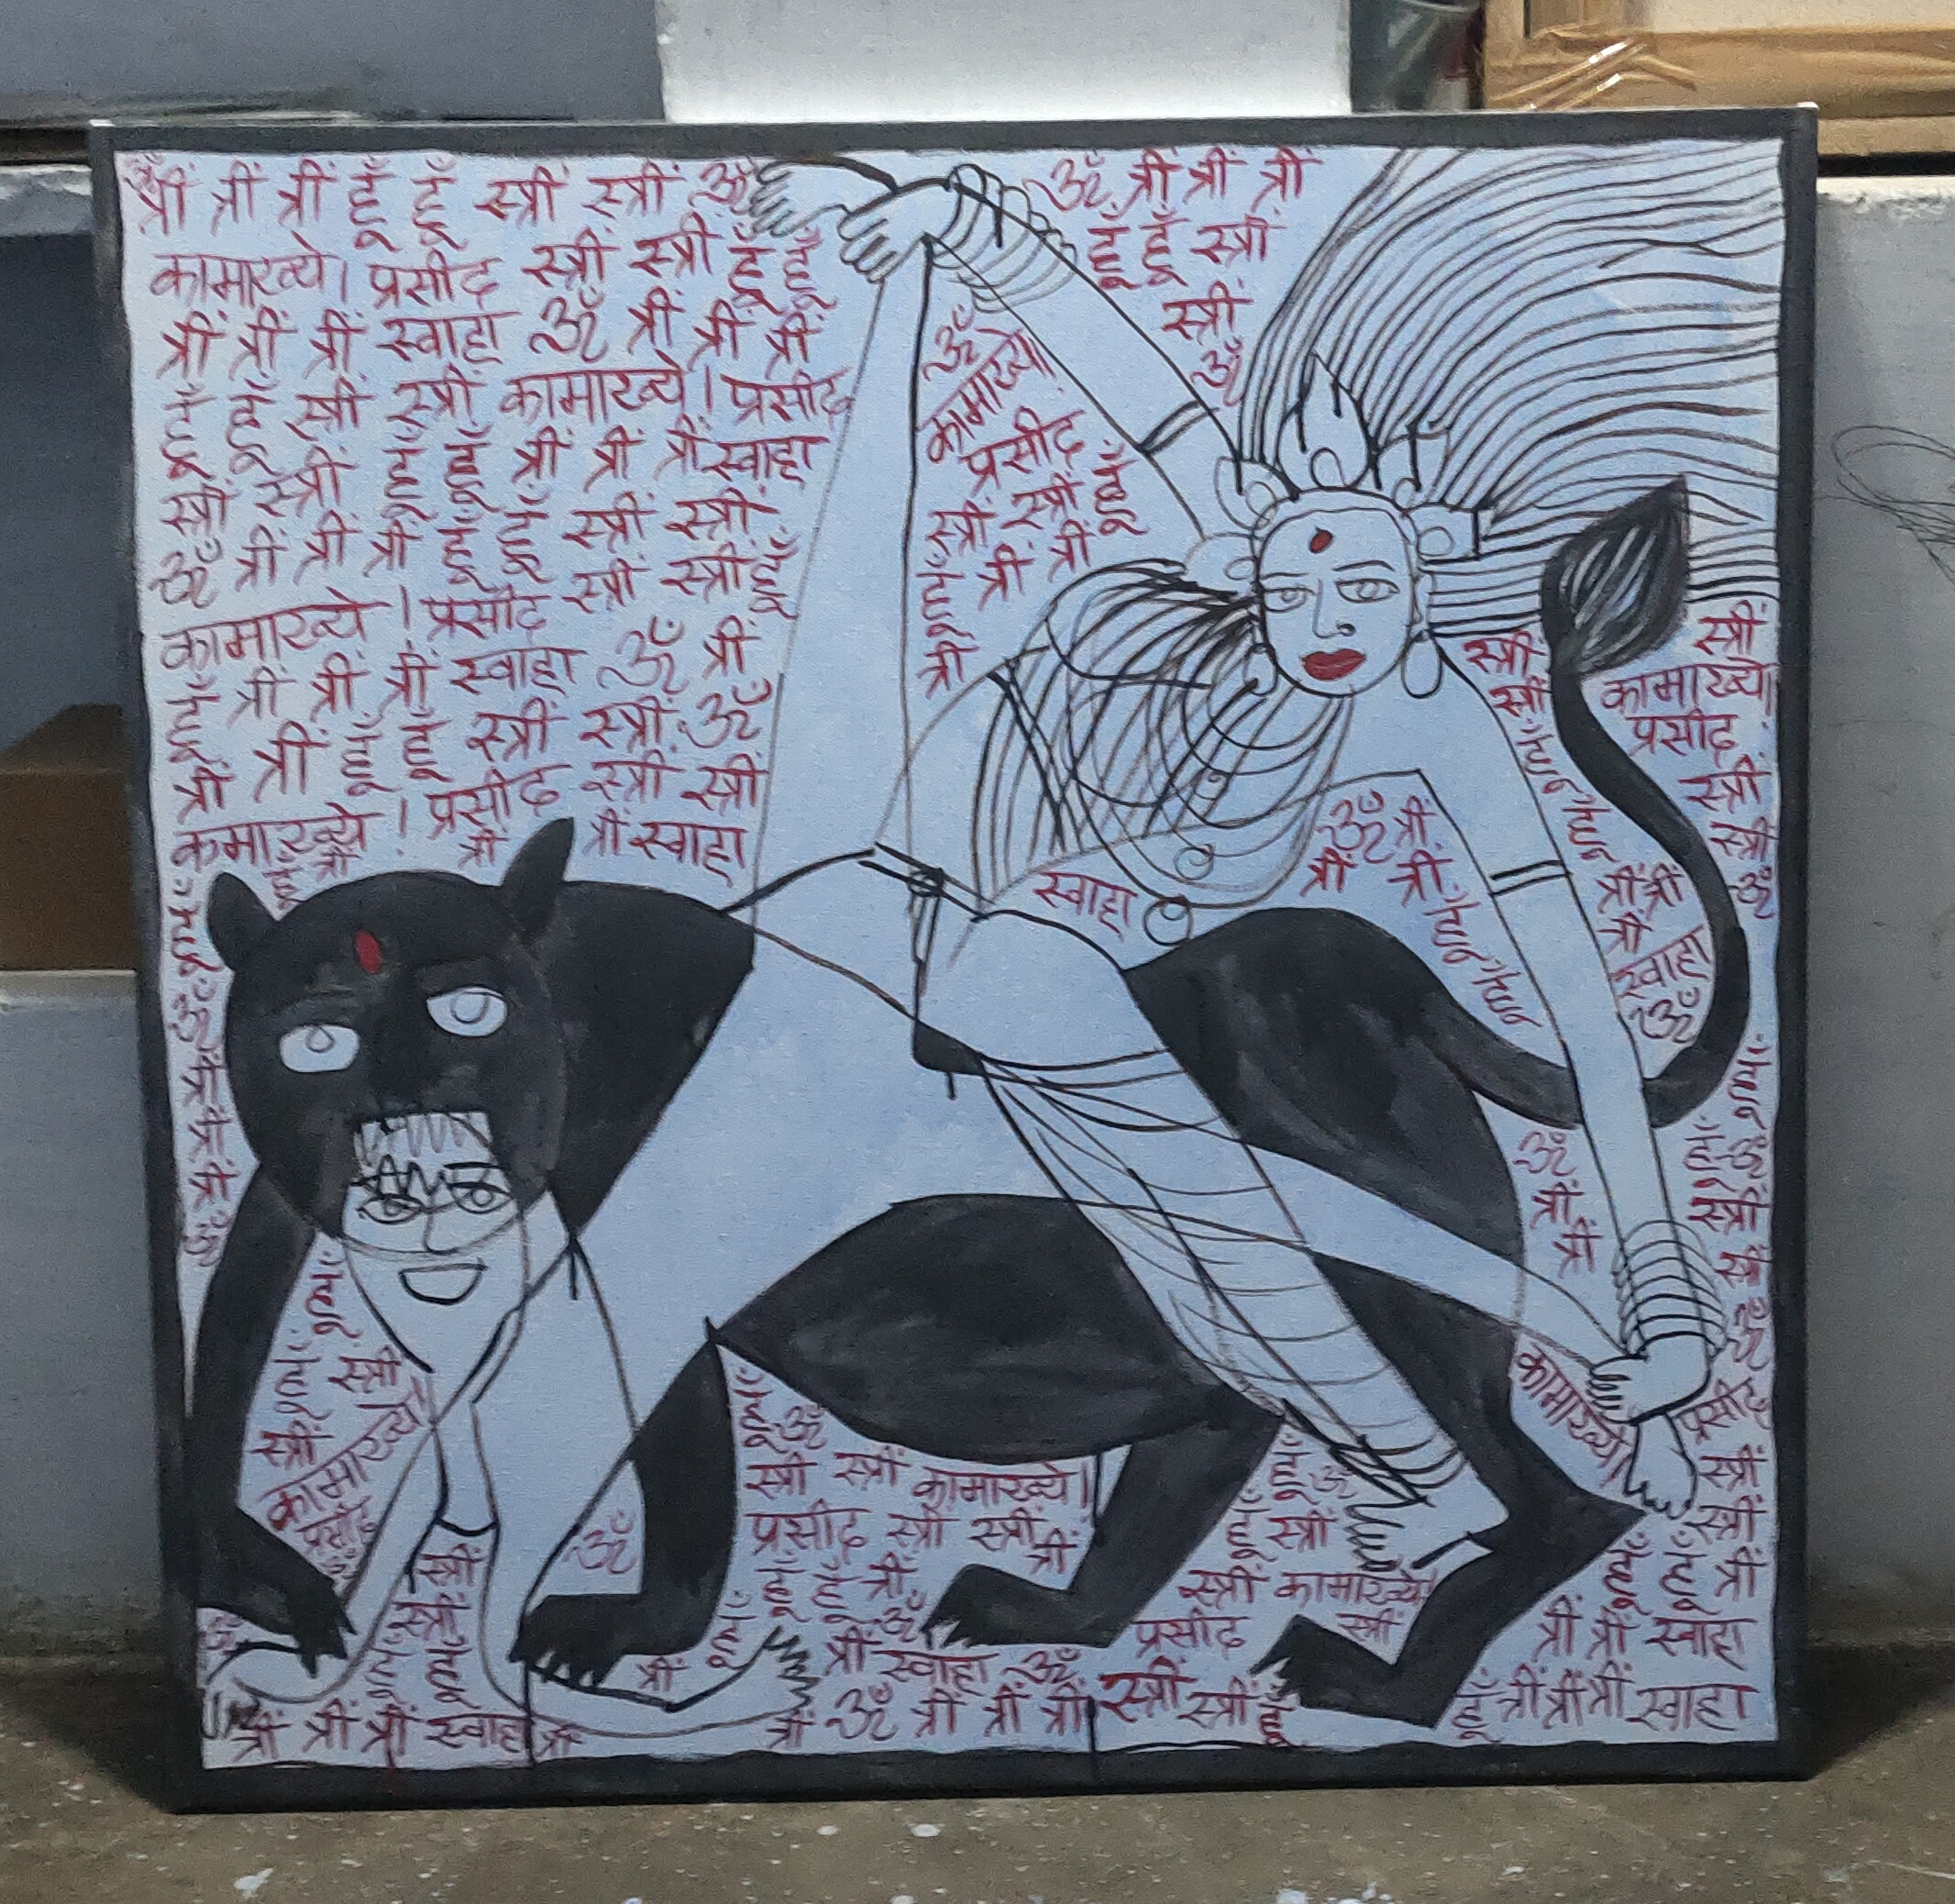 ॐ
त्रीं त्रीं त्रीं हूँ हूँ स्त्रीं स्त्रीं ॐ
कामाख्ये। प्रसीद स्त्रीं स्त्रीं हूँ हूँ
त्रीं त्रीं त्रीं स्वाहा ॐ त्रीं त्रीं त्रीं
हूँ हूँ स्त्रीं स्त्रीं कामाख्ये। प्रसीद
स्त्रीं स्त्रीं हूँ हूँ त्रीं त्रीं त्रीं स्वाहा
ॐ त्रीं त्रीं त्रीं हूँ हूँ स्त्रीं स्त्रीं
कामाख्ये। प्रसीद स्त्रीं स्त्रीं हूँ
हूँ त्रीं त्रीं त्रीं स्वाहा ॐ त्रीं
त्रीं त्रीं हूँ हूँ स्त्रीं स्त्रीं ॐ
कामाख्ये। प्रसीद स्त्रीं स्त्रीं
हूँ त्रीं त्रीं त्रीं स्वाहा
हूँ
हूँ
ॐ
त्रीं
त्रीं
त्रीं
ॐ
ॐ त्रीं त्रीं त्रीं
हूँ हूँ स्त्रीं
स्त्रीं
ॐ
ॐ
कामाख्ये।
प्रसीद
स्त्रीं स्त्रीं हूँ
हूँ त्रीं त्रीं
त्रीं
स्वाहा
स्त्रीं
स्त्रीं
हूँ
हूँ
त्रीं त्रीं
त्रीं
स्वाहा
ॐ
स्त्रीं
कामाख्ये।
प्रसीद
स्त्रीं
स्त्रीं
ॐ
ॐ त्रीं
त्रीं त्रीं
हूँ
हूँ
ॐ
त्रीं
त्रीं
हूँ
हूँ ॐ
स्त्रीं
स्त्रीं
ॐ
कामाख्ये।
प्रसीद
स्त्रीं
स्त्रीं
हूँ हूँ त्रीं
त्रीं त्रीं स्वाहा
हूँ त्रीं त्रीं त्रीं स्वाहा
हूँ
हूँ स्त्रीं
स्त्रीं
कामाख्ये।
प्रसीद
ॐ
स्त्रीं
स्त्रीं
हूँ
हूँ
त्रीं त्रीं त्रीं स्वाहा
ॐ
हूँ ॐ
स्त्रीं स्त्रीं कामाख्ये।
प्रसीद स्त्रीं स्त्रीं
हूँ हूँ त्रीं त्रीं
हूँ त्रीं ॐ
त्रीं त्रीं स्वाहा ॐ
त्रीं ॐ त्रीं त्रीं त्रीं
हूँ ॐ
हूँ स्त्रीं
स्त्रीं कामाख्ये
प्रसीद स्त्रीं
स्त्रीं स्त्रीं हूँ